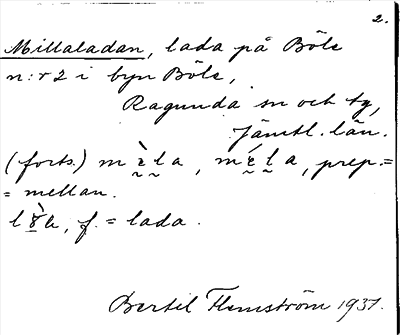 2.
Millaladan, lada på Böle
n:r 2 i byn Böle,
Ragunda sn och tg,
Jämtl. län.
(forts.) m è l a, m é l a, prep. =
= mellan.
f. = lada.
Bertil Flemström 1937.